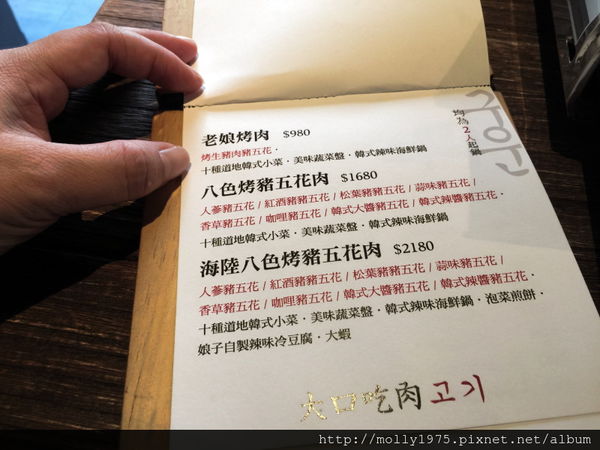 老娘烤肉 $980
烤生豬肉豬五花·
十種道地韓式小菜·美味蔬菜盤·韓式辣味海鮮鍋
均為2人起鍋
八色烤豬五花肉 $1680
人蔘豬五花 / 紅酒豬豬五花 / 松葉豬豬五花 / 蒜味豬五花 /
香草豬五花 / 咖哩豬五花 / 韓式大醬豬五花 / 韓式辣醬豬五花·
十種道地韓式小菜·美味蔬菜盤·韓式辣味海鮮鍋
海陸八色烤豬五花肉 $2180
人蔘豬五花 / 紅酒豬豬五花 / 松葉豬豬五花 / 蒜味豬五花 /
香草豬五花 / 咖哩豬五花 / 韓式大醬豬五花 / 韓式辣醬豬五花·
十種道地韓式小菜·美味蔬菜盤·韓式辣味海鮮鍋·泡菜煎餅·
娘子自製辣味冷豆腐·大蝦
大口吃肉고기
http://molly1975.pixnet.net/album